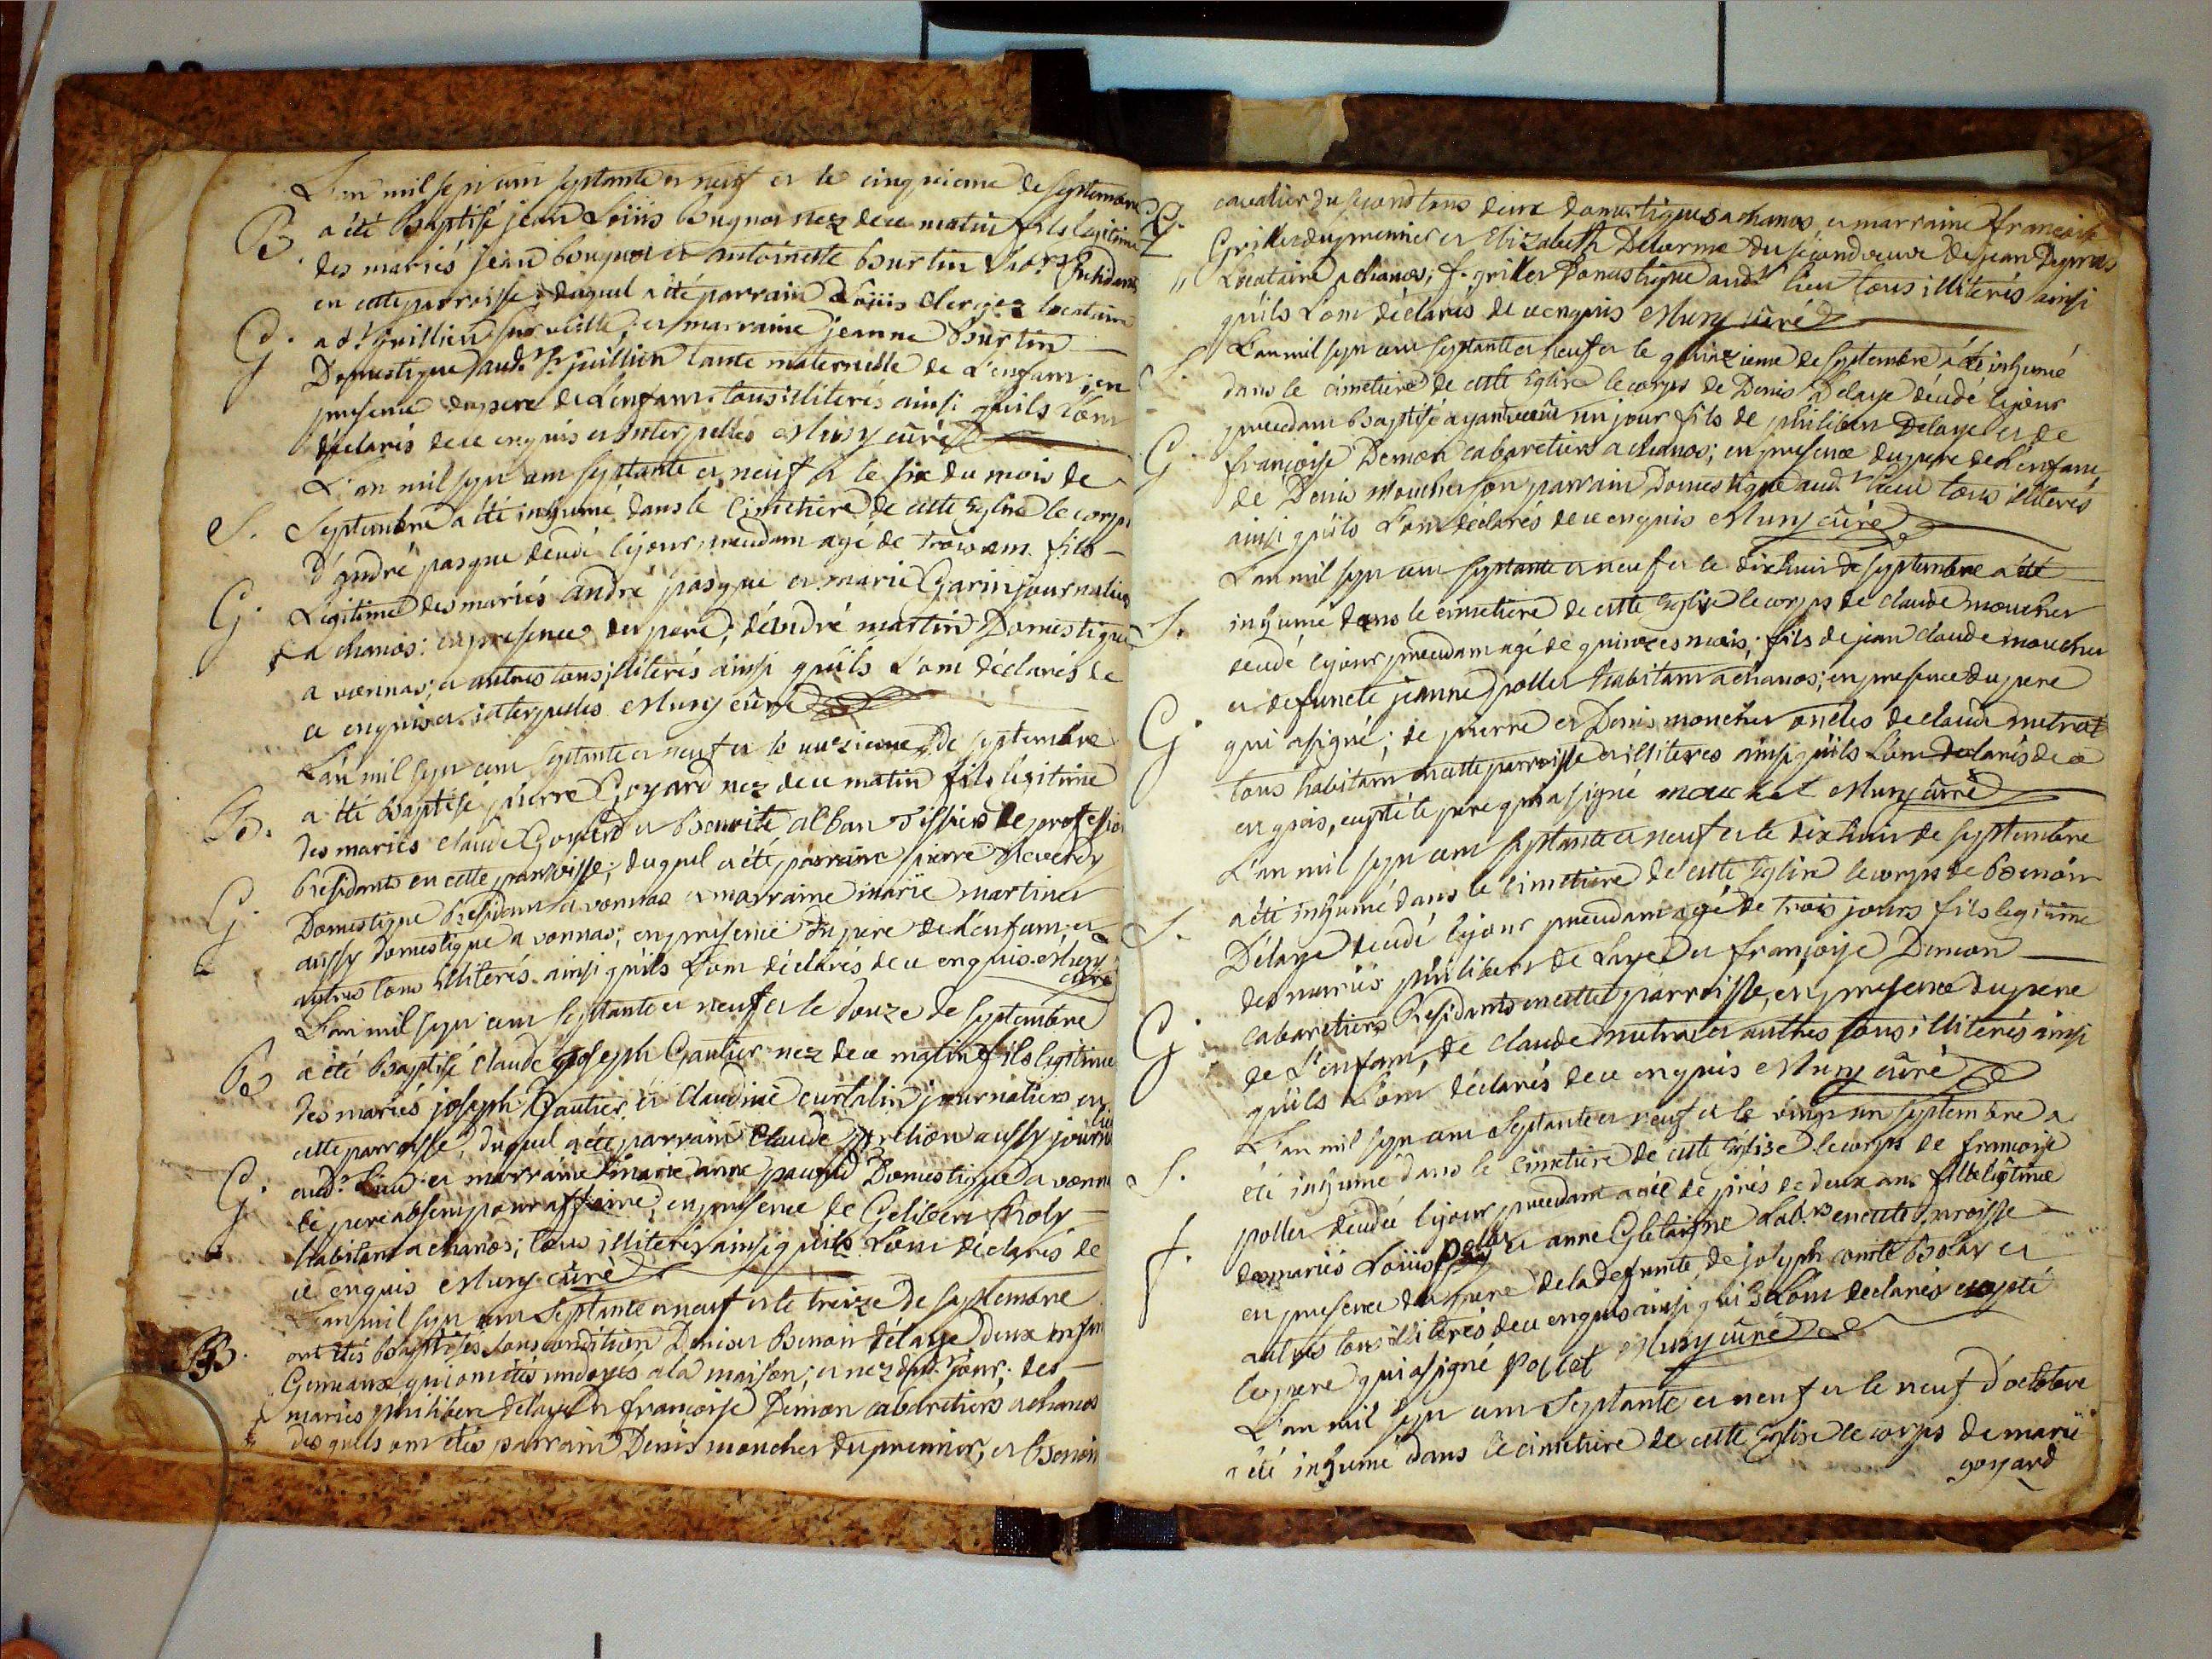 L'an mil sept cent septante et neuf et le cinquieme de septembre
B. a été Baptisé jean Loüis Buguet nez de ce matin fils legitime
des mariés jean Buguet et antoinette Burtin Residants
en cette parroisse; duquel a été parrain Loüis Clerjez locataire
G. a d.t juillien sur veille; et marraine jeanne Burtin
Domestique aud. St juillien tante maternelle de L'enfant; en
presence du pere de L'enfant tous illiterés ainsi quils L'ont
déclarés de ce enquis et interpellés Mury cûré
L'an mil sept cent septante et neuf et le six du mois de
S. Septembre a été inhumé dans le Cimetiere de cette Eglise le corps
d'andré pasque décédé le jour precedant agé de trois ans fils
G. Legitime des mariés andré pasque et marie Garin journaliers
a chanos: en presence du pere; d'andré martin Domestique
a vonnas; et autres tous illiterés ainsi quils L'ont déclarés de
ce enquis et interpellés Mury cûré
L'an mil sept cent septante et neuf et le onzieme de septembre
B. a été Baptisé pierre Goyard nez de ce matin fils légitime
des mariés claude Goyard et Benoite alban Tissiers de profession
Residants en cette parroisse; duquel a été parrain pierre Reverdy
G. Domestique Resident a vonnas et marraine marïe martinet
aussy domestique a vonnas; en presence du pere de L'enfant et
autres tous illiterés ainsi quils L'ont déclarés de ce enquis Mury
cûré
L'an mil sept cent septante et neuf et le douze de septembre
B a été Baptisé Claude joseph Gautier nez de ce matin fils legitime
des mariés joseph Gautier et Claudine curtalin journaliers en
cette parroisse, duquel a été parrain Claude aussy journalier
G. aud. Lieu et marraine marie anne paufid Domestique a vonnas
le pere absent pour affaire; en presence de Gelibert Roly
habitant a chanos; tous illiterés ainsi quils L'ont déclarés de
ce enquis Mury cûré
L'an mil sept cent Septante et neuf et le treize de septembre
BB. ont étés Baptisés sous condition Denis et Benoit délaye deux enfans
Gemeaux qui ont étés ondoyés a la maison, et nez dud. jour; des
mariés philibert délaye et françoise Demon cabaretiers a chanos
des quels ont étés parrain Denis moucher du premier, et Benoit
cavalier du second tous deux domestiques a chanos et marraine françoise
G. Griller du premier et Elizabeth Delorme du second veuve de jean Dupras
Locataire a chanos; f. griller Domestique aud.t lieu tous illiterés ainsi
quils L'ont déclarés de ce enquis Mury cûré
L'an mil sept cent septante et neuf et le quinzieme de septembre a été inhumé
S. dans le cimetiere de cette Eglise le corps de Denis Délaye décédé le jour
precedant Baptisé ayant vecû un jour fils de philibert Delaye et de
G. françoise Demon cabaretiers a chanos; en presence du pere de L'enfant,
de Denis Moucher son parrain Domestique aud.t Lieu tous illiterés
ainsi quils L'ont déclarés de ce enquis Mury cûré
L'an mil sept cent septante et neuf et le dixhuit de septembre a été
S. inhumé dans le cimetiere de cette Eglise le corps de claude moucher
décédé le jour precedant agé de quinzes mois; fils de jean claude moucher
et defuncte jeanne poller habitant a chanos; en presence du pere
G. qui a signé; de pierre et Denis moucher oncles de claude mutrat
tous habitant en cette parroisse et illiteres ainsi quils L'ont déclarés de ce
enquis, excepté le pere qui a signé mouchet Mury cûré
L'an mil sept cent septante et neuf et le dixhuit de septembre
S. a été inhumé dans le cimetiere de cette Eglise le corps de Benoit
Délaye décédé le jour precedant agé de trois jours fils legitime
des mariés philibert de Laye et françoise Demon
G. cabaretiers Residants en cette parroisse, en presence du pere
de L'enfant, de claude mutrat et autres tous illiterés ainsi
quils L'ont déclarés de ce enquis Mury cûré
L'an mil sept cent Septante et neuf et le vingt un septembre a
S. été inhumé dans le Cimetiere de cette Eglise le corps de françoise
poller décédée le jour precedant agée de prés de deux ans fille legitime
f. des mariés Loüis poller et anne Chetaigne Lab.rs en cette parroisse
en presence du pere de la defunte, de joseph comte Bolay et
autres tous illiterés de ce enquis ainsi quils L'ont declarés excepté
le pere qui a signé Pollet Mury cûré
L'an mil sept cent Septante et neuf et le neuf d'octobre
a été inhumé dans le cimetiere de cette Eglise le corps de marie
goyard